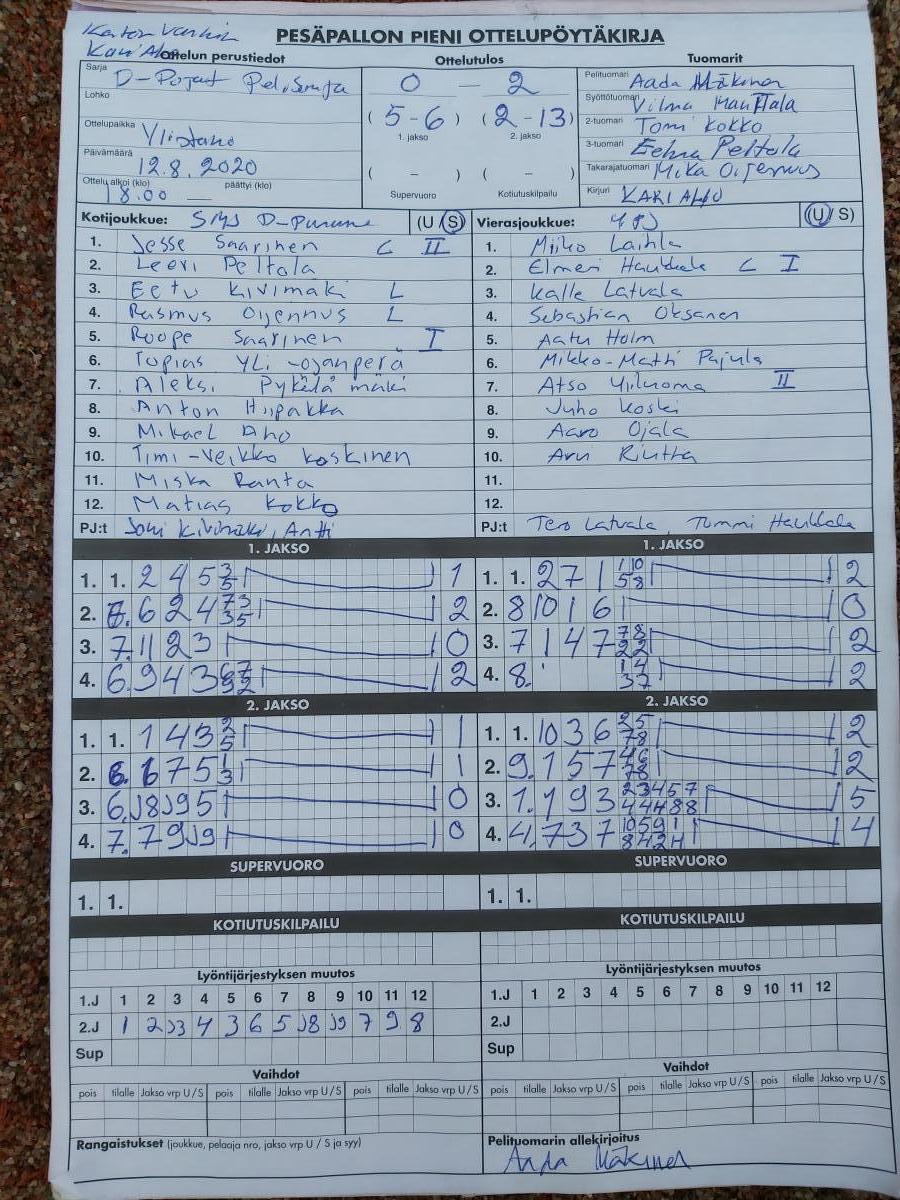 PESÄPALLON PIENI OTTELUPÖYTÄKIRJA
Ottelun perustiedot
Ottelutulos
Tuomarit
Sarja
D-Pojat
0 – 2
Pelituomari Aada Mäkinen
Lohko
(5-6) (2-13)
1. jakso 2. jakso
Syöttötuomari Vilma Manttala
Ottelupaikka Ylistaro
2-tuomari Tomi Kokko
3-tuomari Eelma Peltola
Päivämäärä 12.8.2020
( – ) ( – )
Takarajatuomari Mika Oijennus
Ottelu alkoi (klo) 18.00 päättyi (klo) —
Supervuoro Kotiutuskilpailu
Kirjuri KARI AHO
Kotijoukkue: SMJ D-Punune (U/S)
Vierasjoukkue: (U/S)
1. Jesse Saarinen C II
2. Leevi Peltola
3. Eetu Kivimäki L
4. Rasmus Oijennus L
5. Roope Saarinen I
6. Topias Yli-ojanperä
7. Aleksi Pykälämäki
8. Anton Hiipakka
9. Mikael Aho
10. Timi-Veikko Koskinen
11. Miska Ranta
12. Matias Kokko
PJ:t Joni Kivimäki, Antti
1. Miiko Laihla
2. Elmeri Haukkala C I
3. Kalle Latvala
4. Sebastian Oksanen
5. Aatu Holm
6. Mikko-Matti Pajula
7. Atso Yliluoma II
8. Juho Koski
9. Aaro Ojala
10. Aru Rintta
11.
12.
PJ:t Tero Latvala, Tommi Haukkala
1. JAKSO
1. 1. 2 4 5 3 5 1
2. 6. 6 2 4 73 35 2
3. 7. 11 2 3 0
4. 6. 9 4 3 2
1. JAKSO
1. 1. 2 7 1 1 10 5 8 2
2. 8 10 1 6 0
3. 7 1 4 7 78 22 2
4. 8. 14 37 2
2. JAKSO
1. 1. 1 4 3 2 5 1
2. 6. 6 7 5 1 3 1
3. 6. J8 J9 5 0
4. 7. 7 9 J9 0
2. JAKSO
1. 1. 10 3 6 25 78 2
2. 9. 1 5 7 46 78 2
3. 1. 1 9 3 23457 44488 5
4. 4. 7 3 7 10591 8424 4
SUPERVUORO
1. 1.
SUPERVUORO
1. 1.
KOTIUTUSKILPAILU
KOTIUTUSKILPAILU
Lyöntijärjestyksen muutos
1.J 1 2 3 4 5 6 7 8 9 10 11 12
2.J 1 2 J3 4 3 6 5 J8 J9 7 9 8
Sup
Lyöntijärjestyksen muutos
1.J 1 2 3 4 5 6 7 8 9 10 11 12
2.J
Sup
Vaihdot
pois tilalle Jakso vrp U/S pois tilalle Jakso vrp U/S pois tilalle Jakso vrp U/S
Vaihdot
pois tilalle Jakso vrp U/S pois tilalle Jakso vrp U/S pois tilalle Jakso vrp U/S
Rangaistukset (joukkue, pelaaja nro, jakso vrp U / S ja syy)
Pelituomarin allekirjoitus
Aada Mäkinen